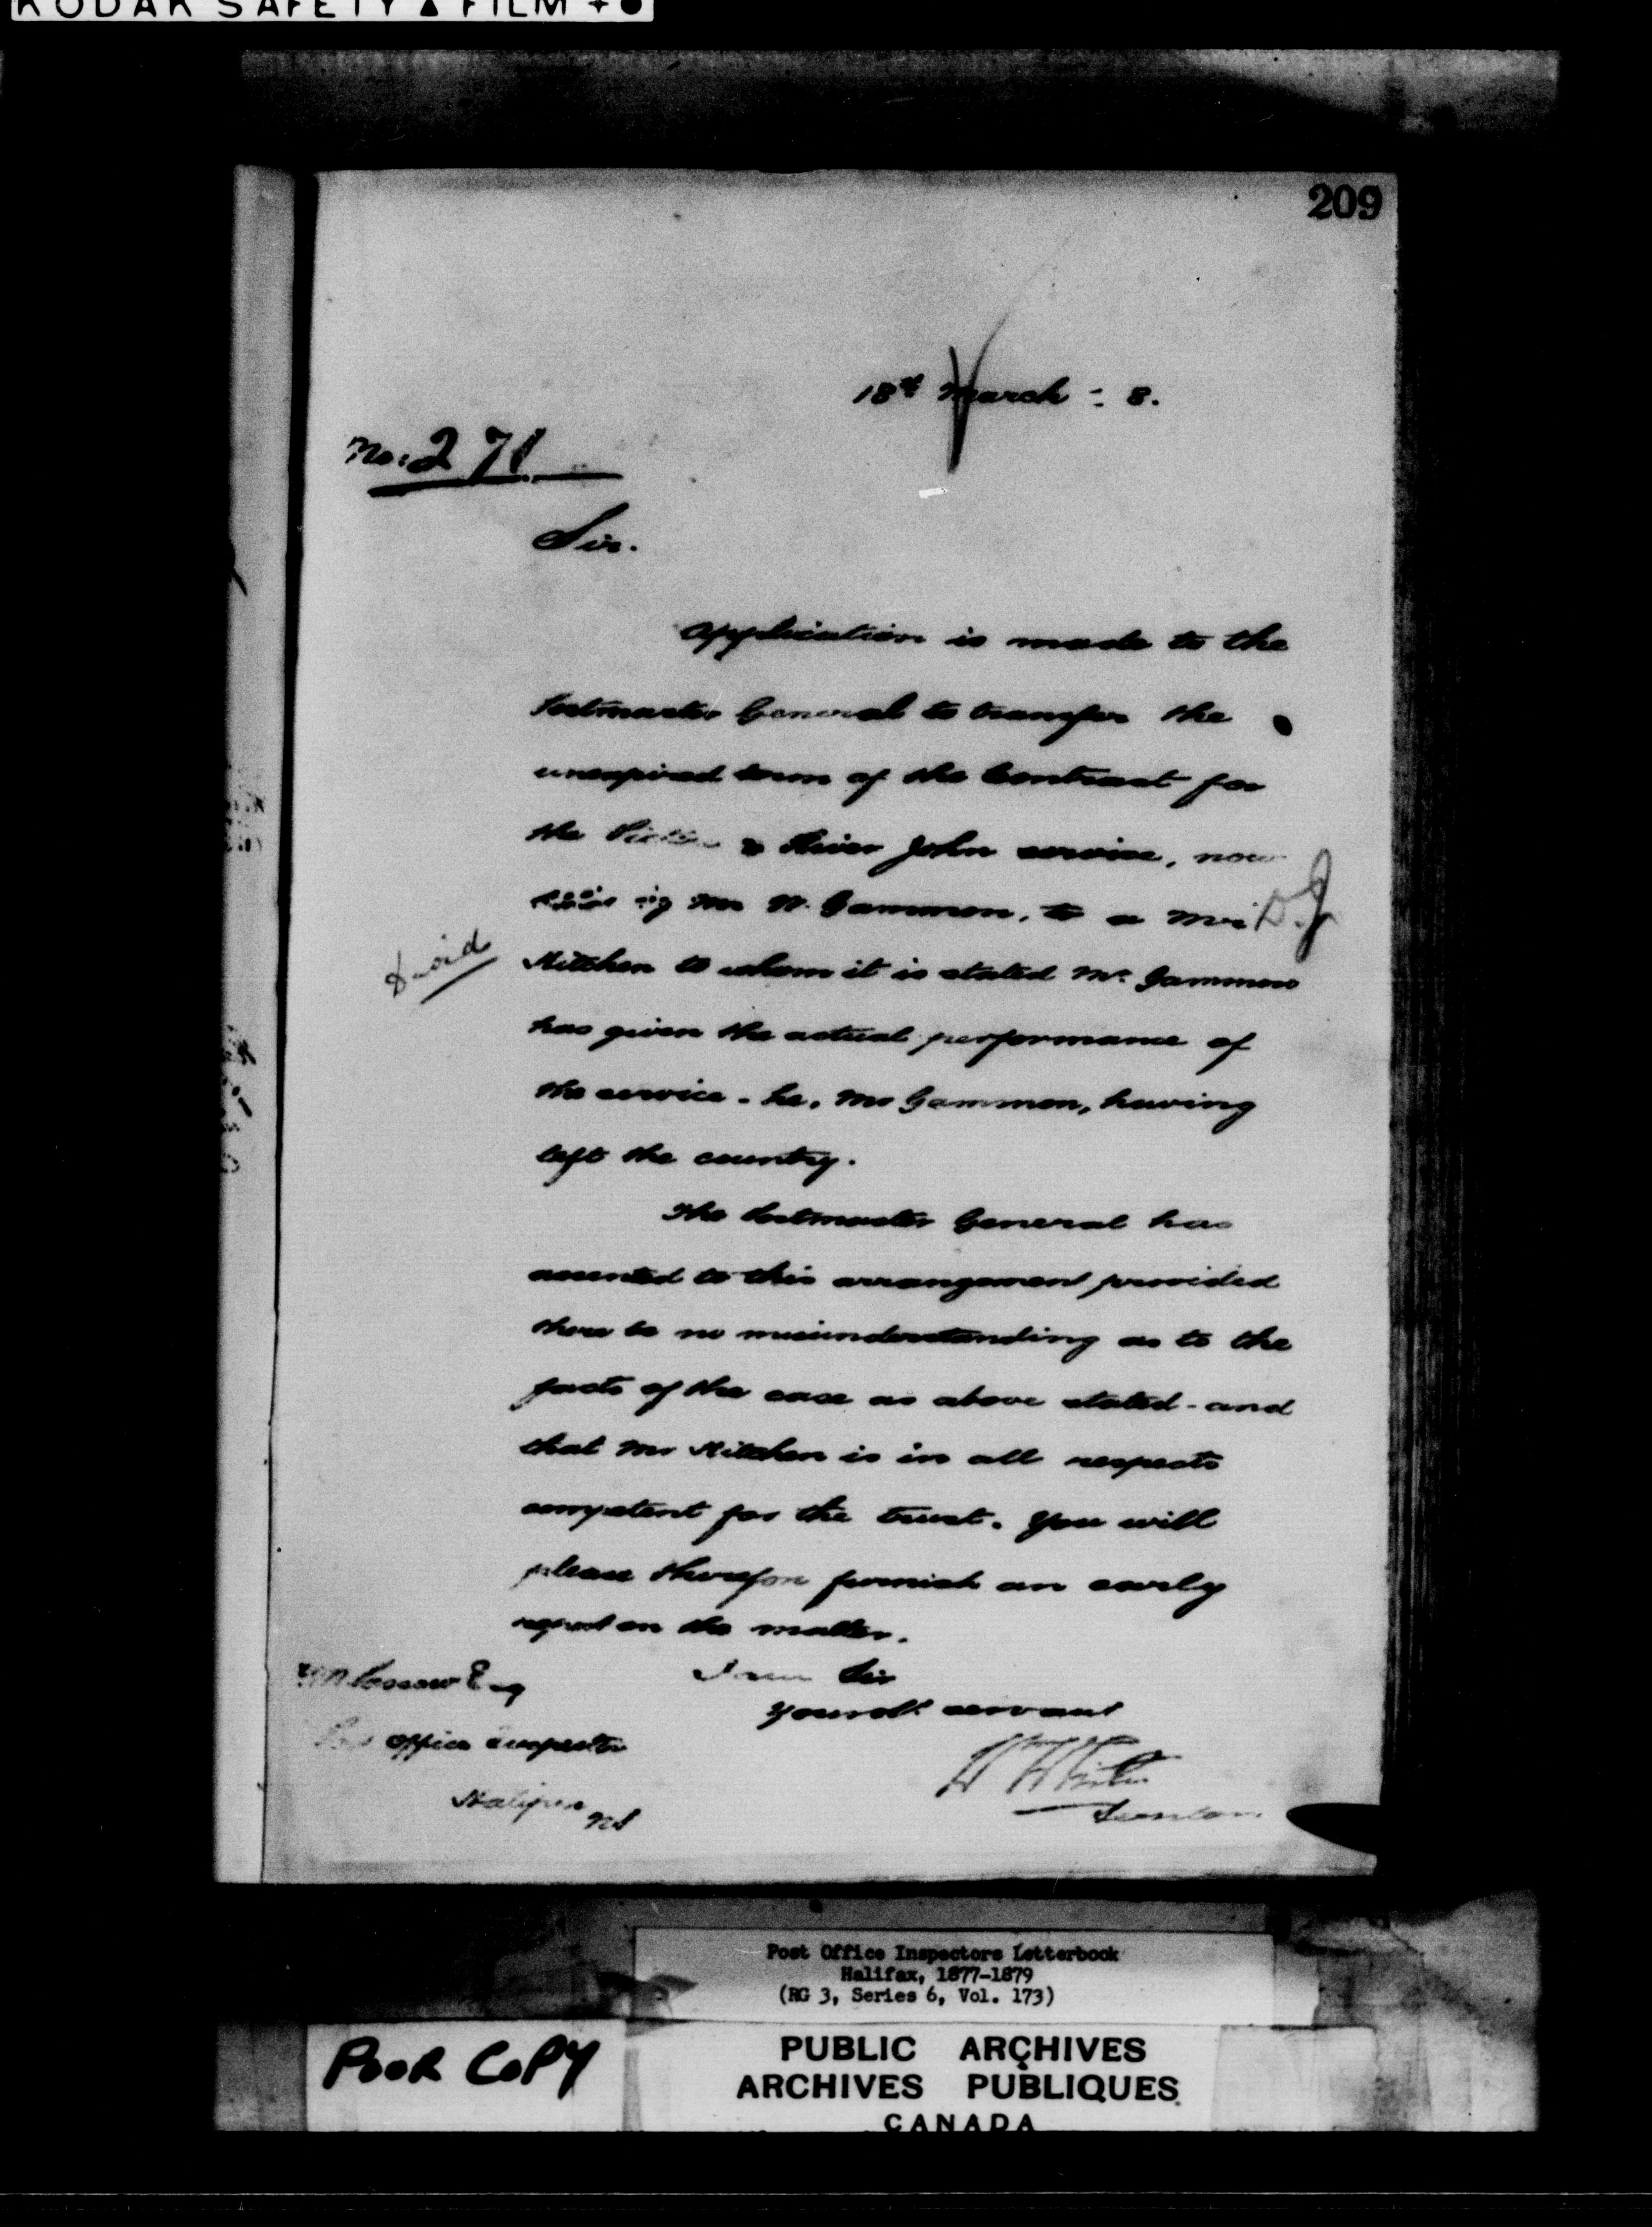 KODAK SAFETY ▲ FILM
209
18th March - 8.
No: 271
Sir.
Application is made to the
Postmaster General to transfer the
unexpired term of the Contract for
the Pictou & River John service, now
by Mr W. Gammon, to a Mr D. J
David
Kitchen to whom it is stated Mr. Gammon
has given the actual performance of
the service - he, Mr Gammon, having
left the country.
The Postmaster General has
assented to this arrangement provided
there be no misunderstanding as to the
facts of the case as above stated - and
that Mr Kitchen is in all respects
competent for the trust. You will
please therefore furnish an early
report on the matter.
I am Sir
Your obt. servant
Esq
Post Office Inspector
Halifax
NS
Post Office Inspectors Letterbook
Halifax, 1877-1879
(RG 3, Series 6, Vol. 173)
POOR COPY
PUBLIC ARCHIVES
ARCHIVES PUBLIQUES
CANADA